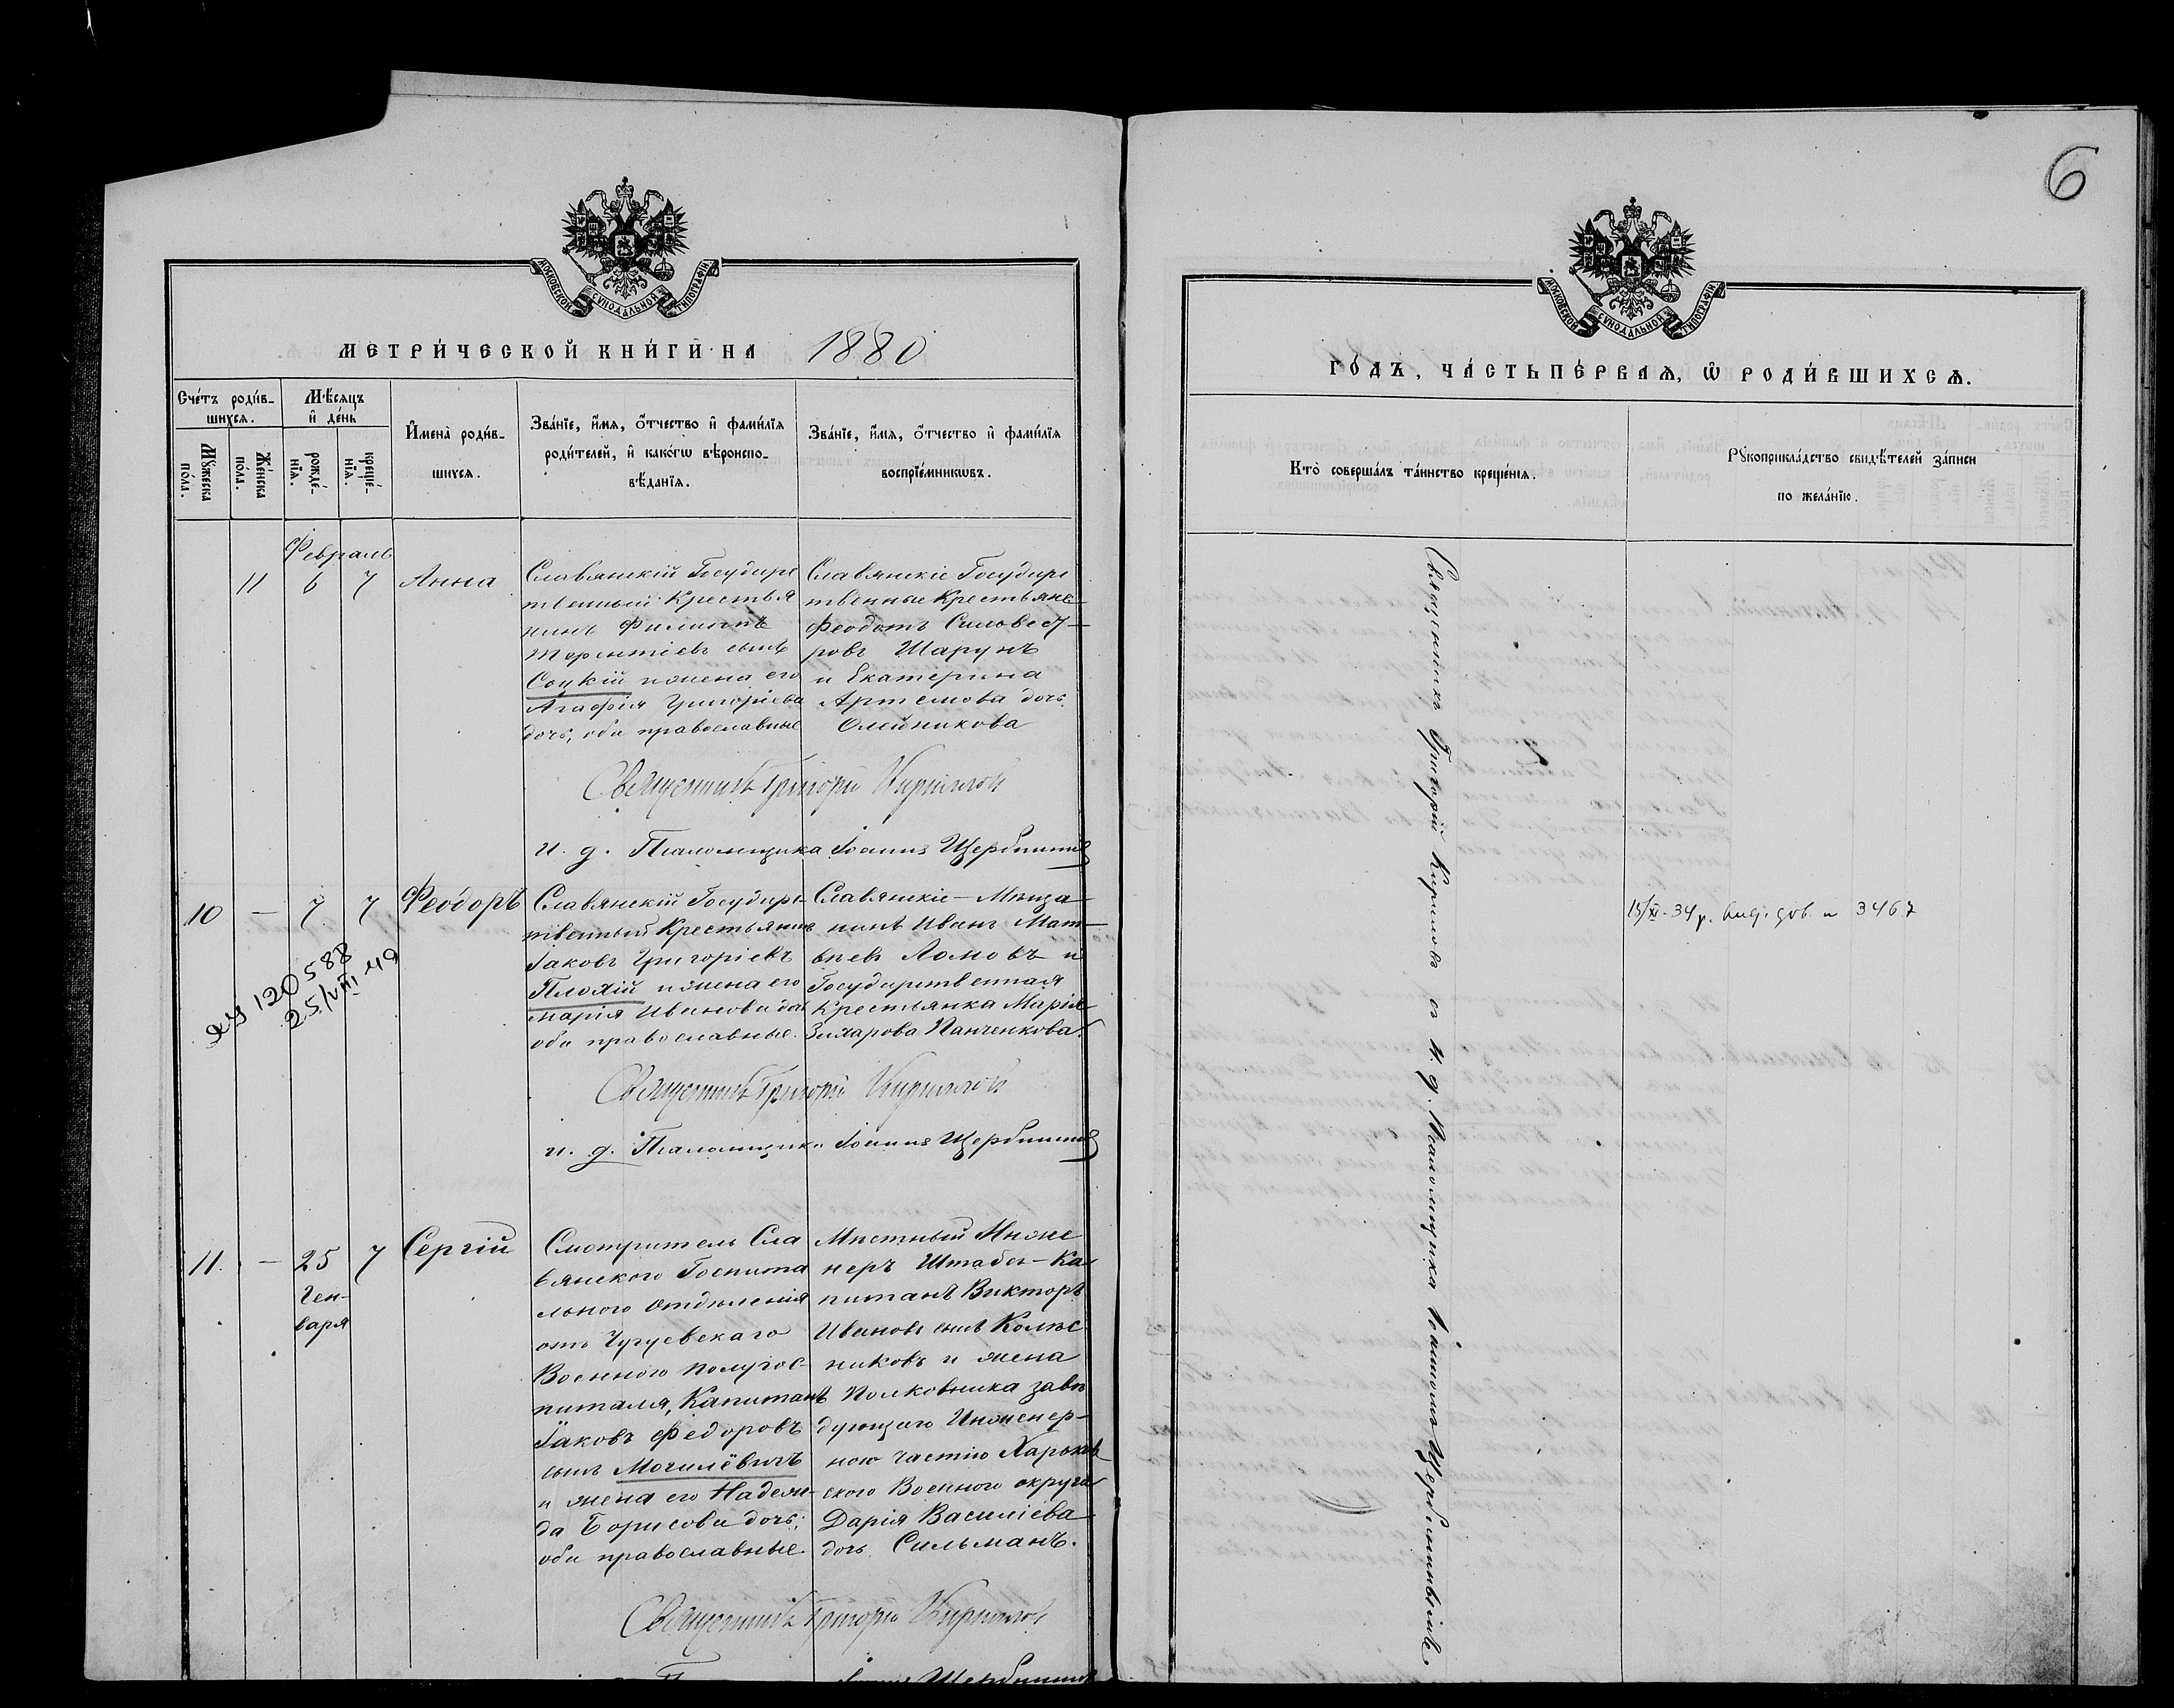 6
МОСКОВСКОЙ СѴНОДАЛЬНОЙ ТИПОГРАФІИ
МЕТРИ́ЧЕСКОЙ КНИ́ГИ НА 1880
Сче́тъ роди́в-
шихсѧ.
Мѣ́сѧцъ
и҆ де́нь
Мꙋ́жеска
по́ла.
Же́нска
по́ла.
рожде́-
нїѧ.
креще́-
нїѧ.
И҆мена̀ роди́в-
шихсѧ.
Зва́нїе, и҆́мѧ, ѻ҆́тчество и҆ фами́лїѧ
роди́телей, и҆ како́гѡ вѣроиспо-
вѣ́данїѧ.
Зва́нїе, и҆́мѧ, ѻ҆́тчество и҆ фами́лїѧ
воспрїе́мникѡвъ.
Февраль
11 6 7 Анна
Славянскій Государс
твенный Крестья
нинъ Филиппъ
Терентіевъ сынъ
Соцкій и жена его
Агафія Григоріева
дочь, оба православные
Славянскіе Государс
твенные Крестьяне
Феодотъ Сильвест-
ровъ Шарунъ
и Екатерина
Артемова дочь
Олейникова
Священникъ Григорій Кирилловъ
и. д. Псаломщика Іоаннъ Щербининъ
10 — 7 7 Феодоръ
Славянскій Государс-
твенный Крестьянинъ
Іаковъ Григоріевъ
Плохій и жена его
Марія Иванова дочь
оба православные.
Славянскіе — Мѣща-
нинъ Иванъ Мат-
вѣевъ Ломовъ и
Государственная
Крестьянка Марія
Захарова Панченкова.
120588
25/VIII 49
Священникъ Григорій Кирилловъ
и. д. Псаломщика Іоаннъ Щербининъ
11. — 25 7 Сергій
Ген-
варя
Смотритель Сла
вянского Госпита
льного Отдѣленія
отъ Чугуевскаго
Военного полугос-
питаля, Капитанъ
Іаковъ Федоровъ
сынъ Могилёвичъ
и жена его Надеж-
да Борисова дочь;
оба православные.
Мѣстный Инже
неръ Штабсъ-Ка
питанъ Викторъ
Ивановъ сынъ Колес
никовъ и жена
Полковника завѣ
дующаго Инженер-
ною частію Харьков
ского Военного округа
Дарія Василіева
дочь Сильманъ.
Священникъ Григорій Кирилловъ
Іоаннъ Щербининъ
МОСКОВСКОЙ СѴНОДАЛЬНОЙ ТИПОГРАФІИ
ГО́ДЪ, ЧА́СТЬ ПЕ́РВАѦ, Ѡ҆ РОДИ́ВШИХСѦ.
Кто̀ соверша́лъ та́инство креще́нїѧ.
Рꙋкоприкла́дство свидѣ́телей за́писи
по жела́нїю.
Священникъ Григорій Кирилловъ съ И. д. Псаломщика Іоанномъ Щербининымъ.
15/XI-34 р. вид. дов. н 3467